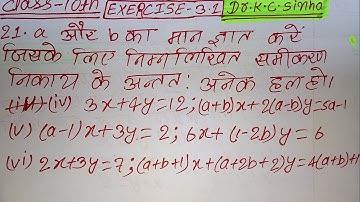 Class-10th EXERCISE-3.1 Dr.K.C.Sinha
21. a और b का मान ज्ञात करें
जिसके लिए निम्नलिखित समीकरण
निकाय के अनन्तत: अनेक हल हो।
(iv) 3x+4y=12; (a+b)x+2(a-b)y=5a-1
(v) (a-1)x+3y=2; 6x+(1-2b)y=6
(vi) 2x+3y=7; (a+b+1)x+(a+2b+2)y=4(a+b)+1